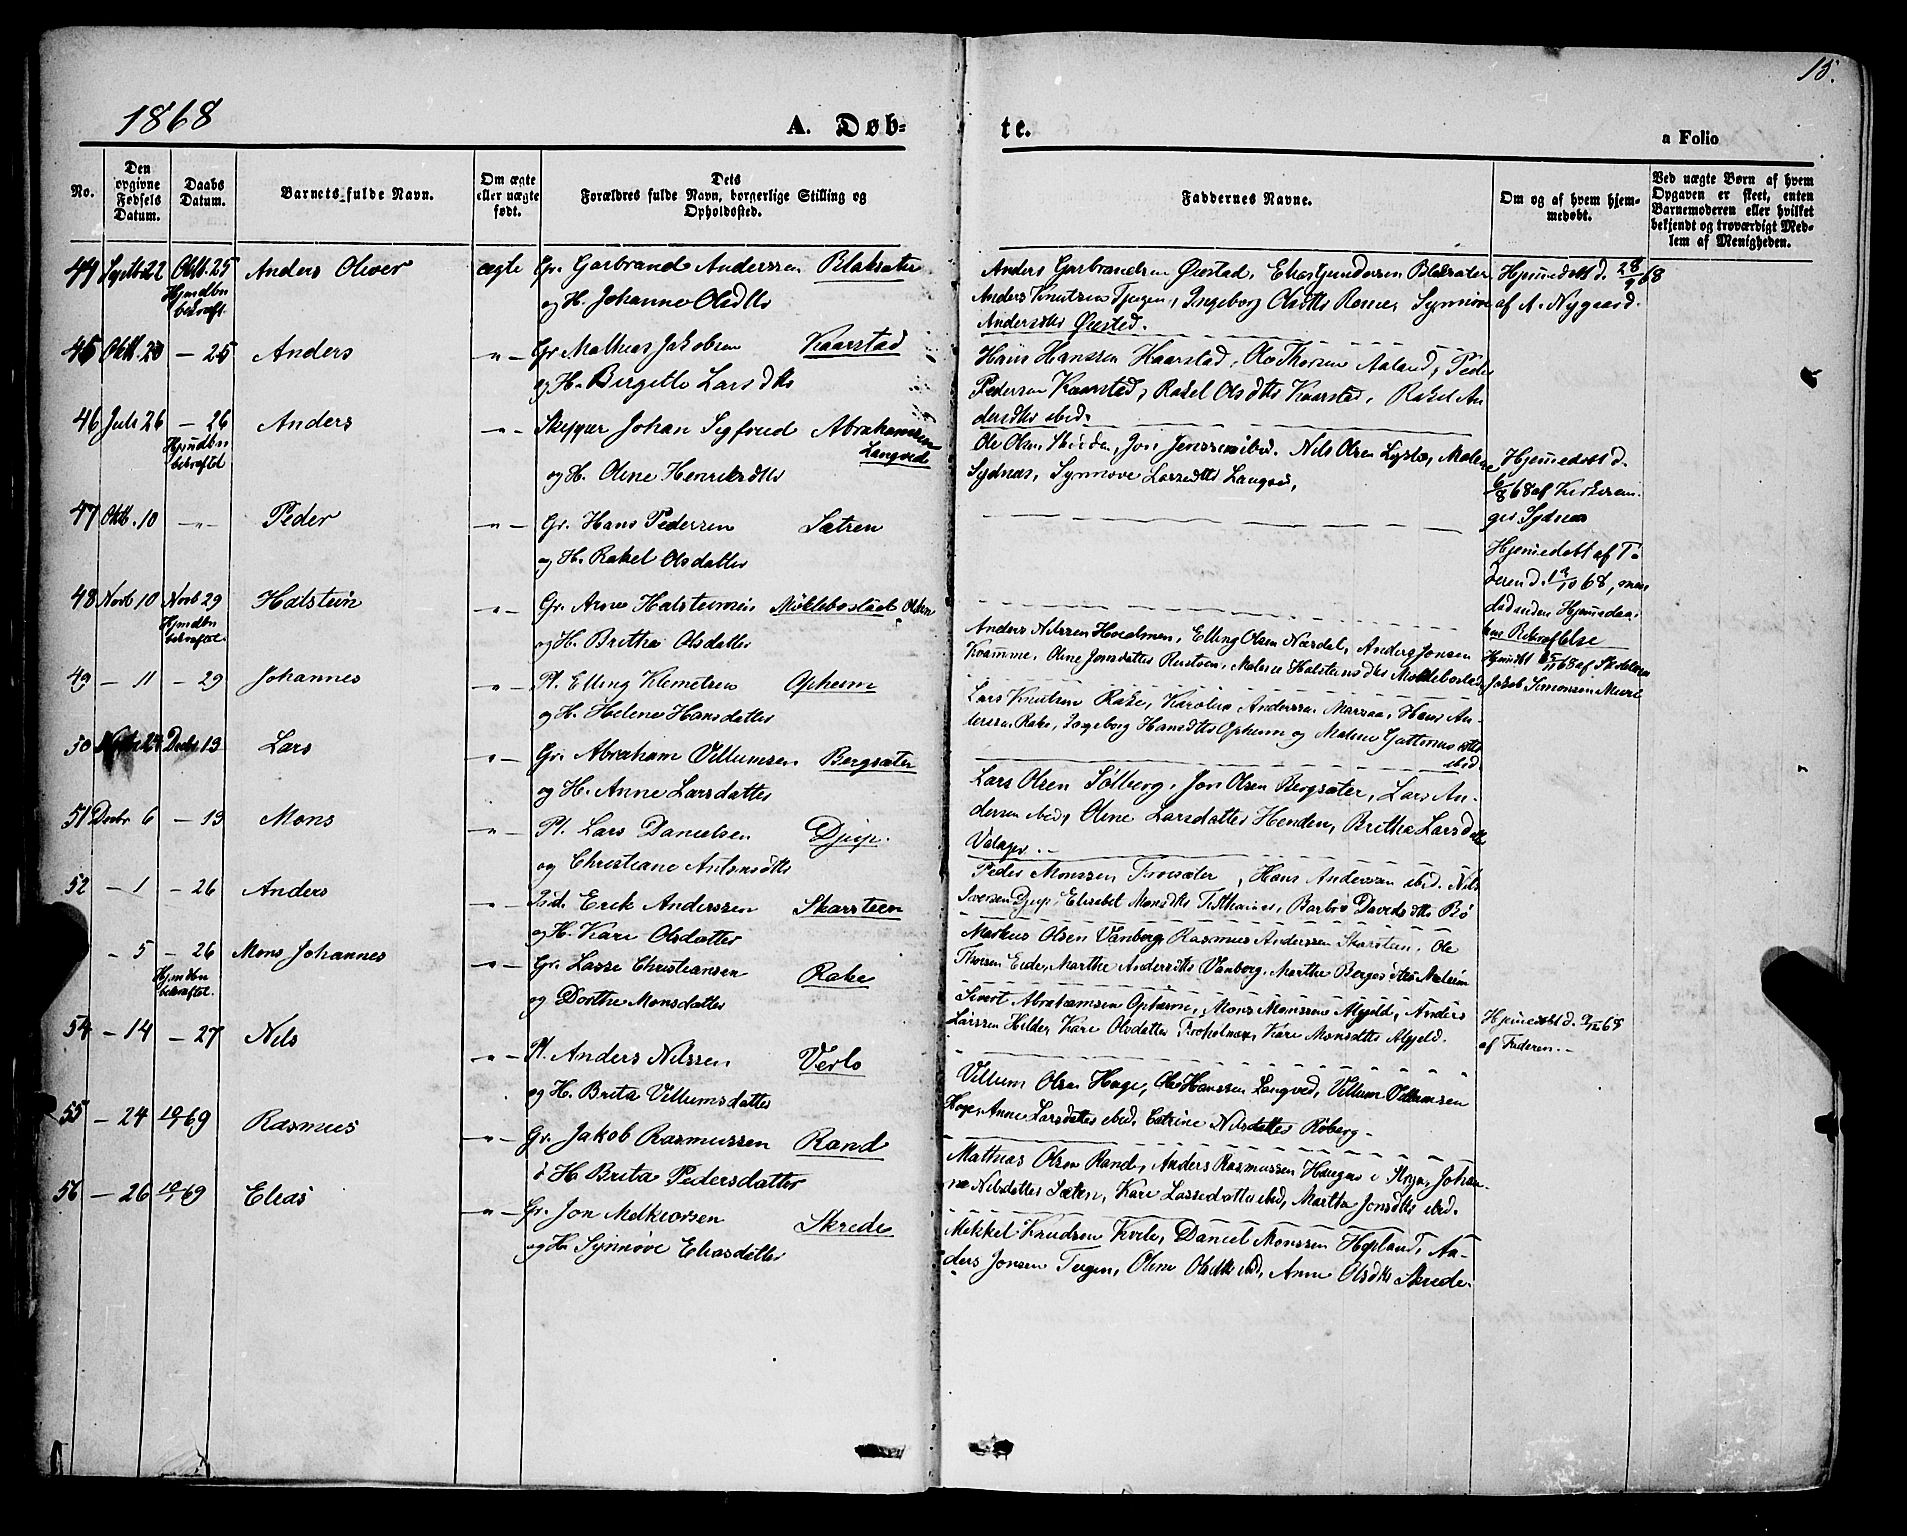 15.
1868
A. Døb-
te.
a Folio
No.
Den opgivne Fødsels Datum.
Daabs Datum.
Barnets fulde Navn.
Om ægte eller uægte født.
Dets Forældres fulde Navn, borgerlige Stilling og Opholdssted.
Faddernes Navne.
Om og af hvem hjemmedøbt.
Ved uægte Børn af hvem Opgaven er skeet, enten Barnemoderen eller hvilket bekjendt og troværdigt Medlem af Menigheden.
44 Septb. 22 Oktb. 25 Anders Oliver ægte Gr. Garbrand Anderssen Blaksæter
Hjmdbn bekræft.
og H. Johanne Olsdtr
Anders Garbrandsen Øvstad, Elias Gundersen Blaksæter
Anders Knutsen Tjugen, Ingeborg Olsdtr Synnøve
Andersdtr Øvsted.
Hjemmedøbt d. 28/9 68
af A. Nygaard.
45 Oktb. 20 — 25 Anders — " — Gr. Mathias Jakobsen Kaarstad
og H. Birgitte Larsdtr
Hans Hanssen Kaarstad, Ole Thorsen Aaland, Peder
Pedersen Kaarstad, Rakel Olsdtr Kaarstad, Rakel An
dersdtr ibid.
46 Juli 26 — 26 Anders — " — Skipper Johan Sigfried Abrahamsen
Langved
Hjmdbn bekræftet
og H. Oline Henriksdtr
Ole Olsen Jon Jenssen ibid. Nils Olsen Malene
Sydnæs, Synnøve Larsdtr Langved,
Hjemmedøbt d.
6/8 68 af Kirkesan
ger Sydnæs
47 Oktb. 10 — " — Peder — " — Gr. Hans Pedersen Sætren
og H. Rakel Olsdatter
Hjemmedøbt af Fa
deren d. 13/10 68, men
død inden Hjemmedaa
bens Bekræftelse
48 Novb 10 Novb 29 Halstein — " — Gr. Arne Halsteinsen Myklebostad
Hjmdbn bekræftet.
og H. Brithe Olsdatter
Anders Nilssen Elling Olsen Nærdal, Anders Jonsen
Kvamme, Oline Jonsdatter Rustøen, Malene Halsteinsdtr Myklebostad
Hjmdbt 15/11 68 af Skolelærer
Jakob Simonssen Muri
49 — 11 — 29 Johannes — " — Pl. Elling Klemetsen Opheim
og H. Helene Hansdatter
Lars Knutsen Rake, Karoline Anderssen Hans An-
derssen Rake, Ingeborg Hansdtr Opheim og Malene
ibid.
50 24 Decbr 13 Lars — " — Gr. Abraham Villumsen Bergsæter
og H. Anne Larsdatter
Lars Olsen Sølberg, Jon Olsen Bergsæter, Lars An-
dersen ibid, Oline Larsdatter Henden, Brithe Larsdtr
51 Decbr 6 — 13 Mons — " — Pl. Lars Danielsen Djup.
og Christiane Antonsdtr
Peder Monssen Hans Anderssen ibid. Nils
Iversen Djup, Elisabet Monsdtr Barbro Davidsdtr Bø
52 — 1 — 26 Anders — " — Erik Anderssen Skarsteen
og H. Kari Olsdatter
Markus Olsen Vanberg, Rasmus Anderssen Skarsteen, Ole
Thorsen Eide, Marthe Andersdtr Vanberg, Marthe
— 5 — 26 Mons Johannes — " — Gr. Lasse Christiansen Rake
Hjmdbn bekræftet.
og Dorthe Monsdatter
Sivert Abrahamsen Opheim, Mons Monssen Anders
Larssen Hilde, Kari Olsdatter Kari Monsdtr
Hjemmedøbt d. 9/12 68
af Faderen.
54 — 14 — 27 Nils — " — Pl. Anders Nilssen Verlo
og H. Brita Villumsdatter
Villum Olsen Hage, Ole Hanssen Langved, Villum Villumsen
Hage, Anne Larsdatter ibid, Catrine Nilsdatter Roberg
55 — 24 10/1 69 Rasmus — " — Gr. Jakob Rasmussen Rand
& H Brita Pedersdatter
Mathias Olsen Rand, Anders Rasmussen Haugen i Stryn, Johan
ne Nilsdatter Sæten, Kari Lassedatter ibid, Martha Jonsdtr ibid.
56 — 26 10/1 69 Elias — " — Gr. Jon Melkiorsen Skrede
og H. Synnøve Eliasdatter
Mikkel Knudsen Kvile, Daniel Monssen Hopland, An-
ders Jonsen Tugen, Oline Olsdtr ibid, Anne Olsdtr Skrede.